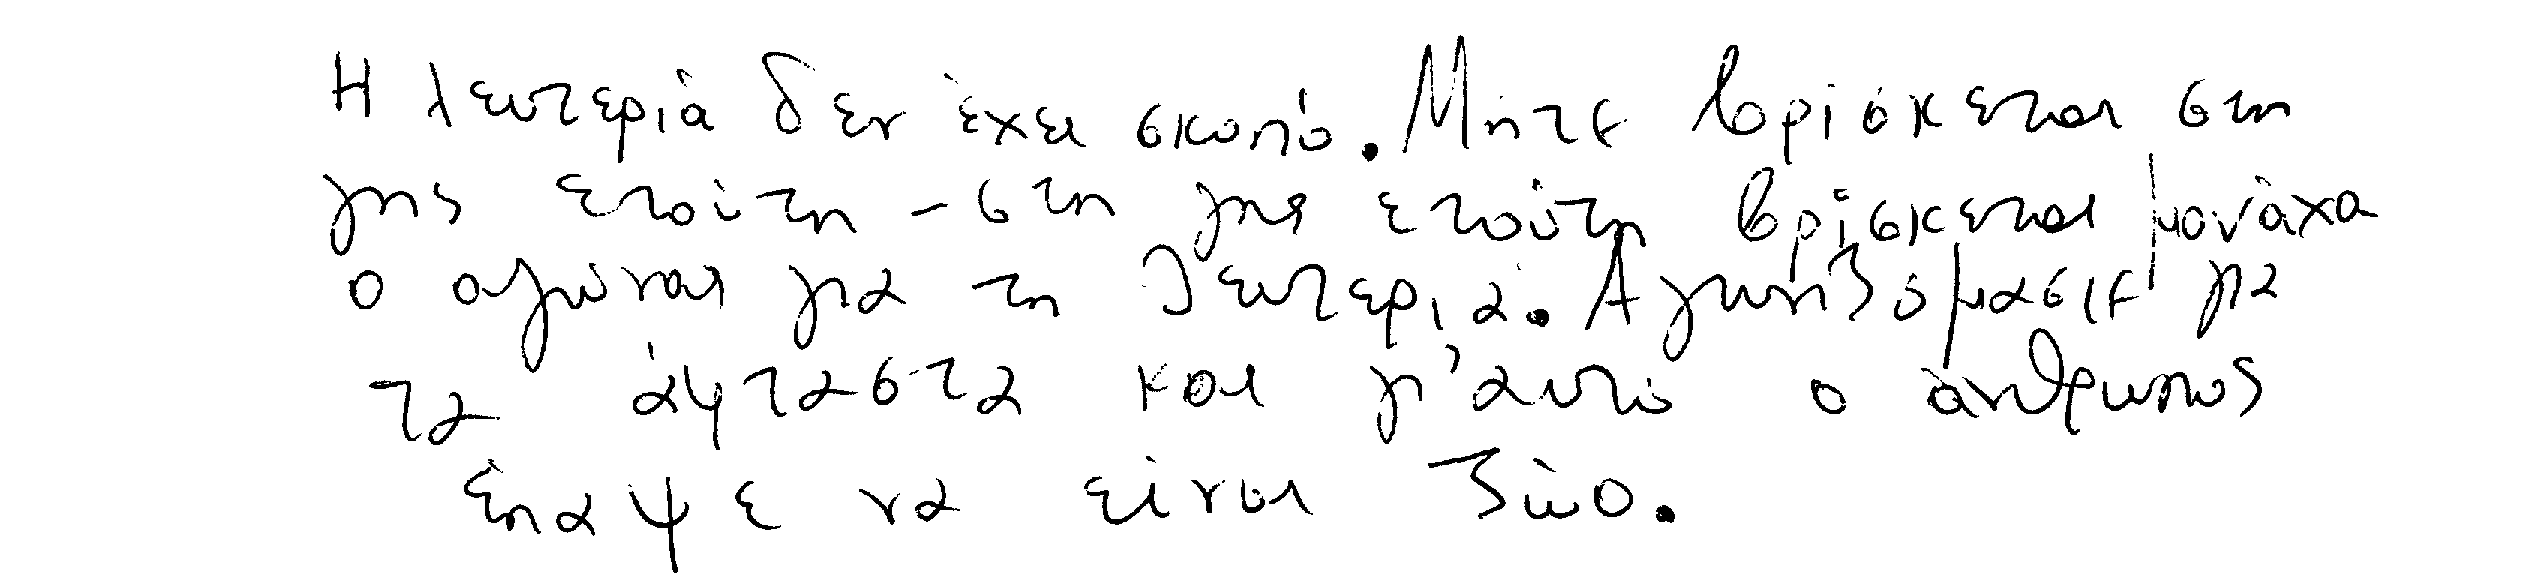 Η λευτεριά δεν έχει σκοπό. Μήτε βρίσκεται στη
γης ετούτη - στη γης ετούτη βρίσκεται μονάχα
ο αγώνας για τη λευτεριά. Αγωνιζόμαστε για
τα άφταστα και γι' αυτό ο άνθρωπος
έπαψε να είναι ζώο.